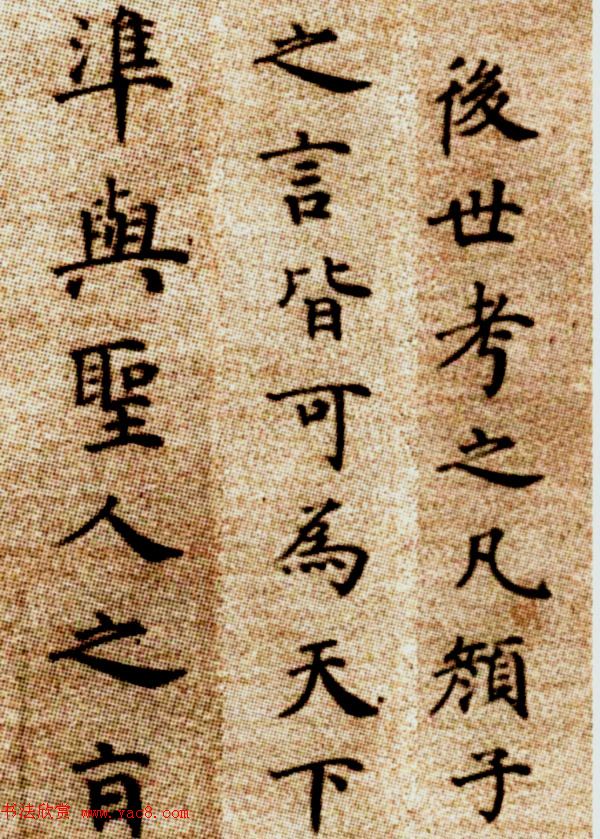 後世考之凡顏子
之言皆可為天下
準與聖人之
书法欣赏 www.yac8.com